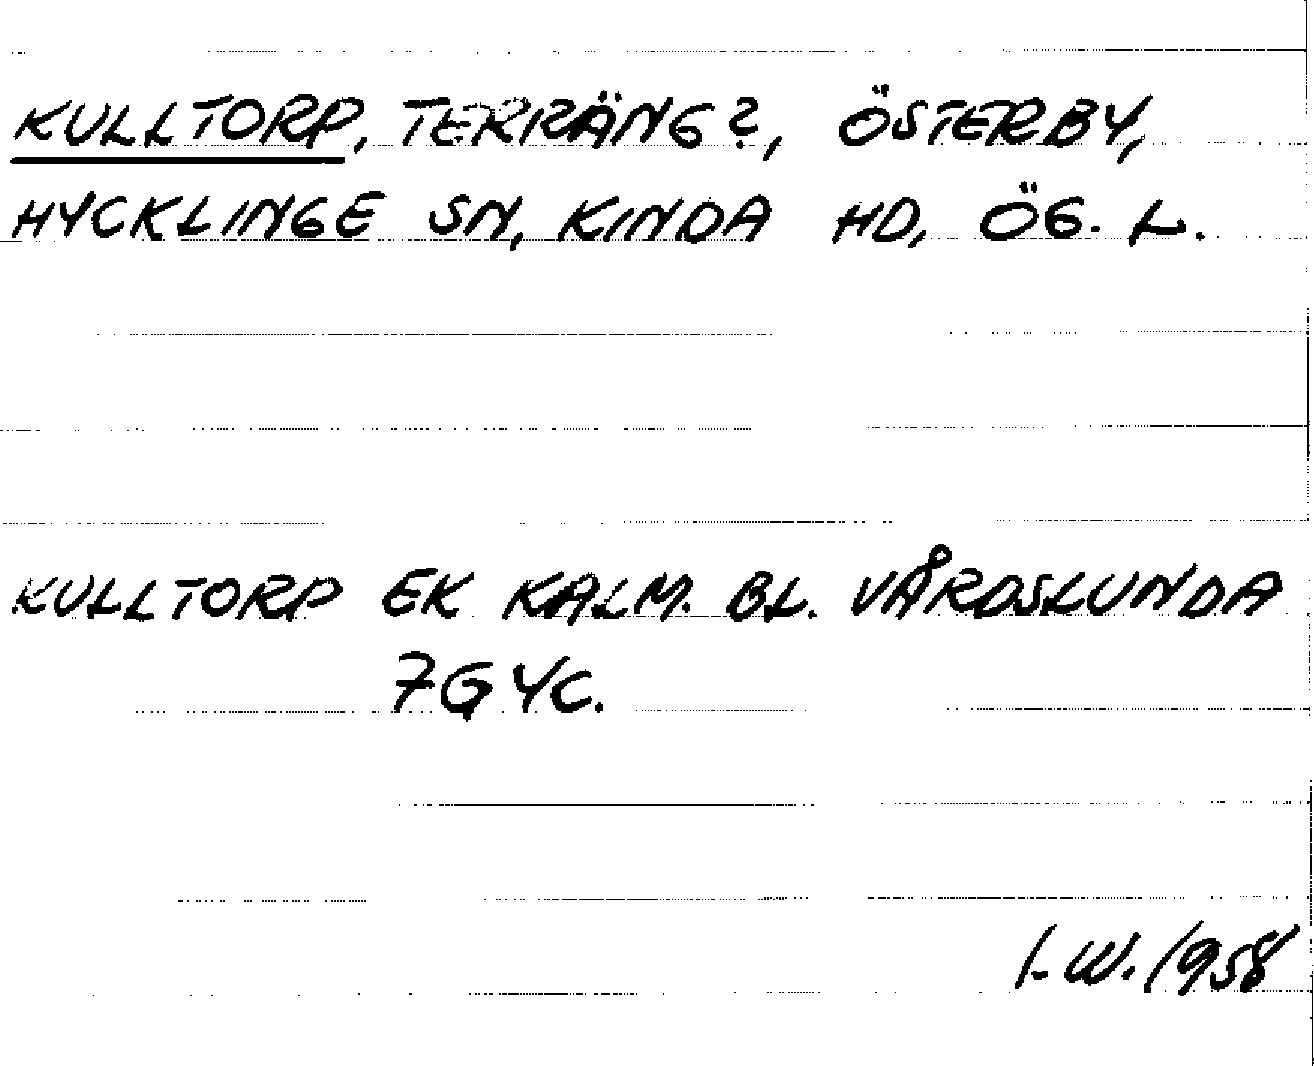 KULLTORP, TERRÄNG?, ÖSTERBY,
HYCKLINGE SN, KINDA HD, ÖG. L.
KULLTORP EK KALM. BL. VÅRDSLUNDA
7G4C.
I. W. 1958